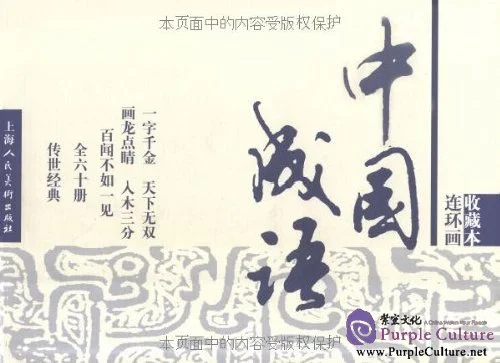 本页面中的内容受版权保护
收藏本
连环画
中国
成语
一字千金 天下无双
画龙点睛 入木三分
百闻不如一见
全六十册
传世经典
上海人民美术出版社
文化 A China Within Your Reach
Purple Culture
PurpleCulture.net
www.PurpleCulture.net
本页面中的内容受版权保护